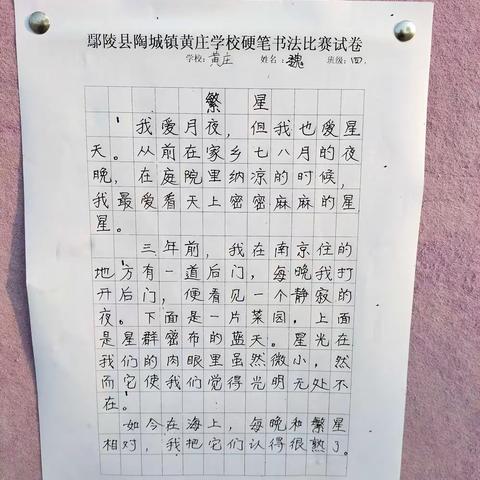 鄢陵县陶城镇黄庄学校硬笔书法比赛试卷
学校:黄庄 姓名:魏 班级:四.
繁星
我爱月夜,但我也爱星
天。从前在家乡七八月的夜
晚,在庭院里纳凉的时候,
我最爱看天上密密麻麻的星
星。
三年前,我在南京住的
地方有一道后门,每晚我打
开后门,便看见一个静寂的
夜。下面是一片菜园,上面
是星群密布的蓝天。星光在
我们的肉眼里虽然微小,然
而它使我们觉得光明无处不
在。
如今在海上,每晚和繁星
相对,我把它们认得很熟了。